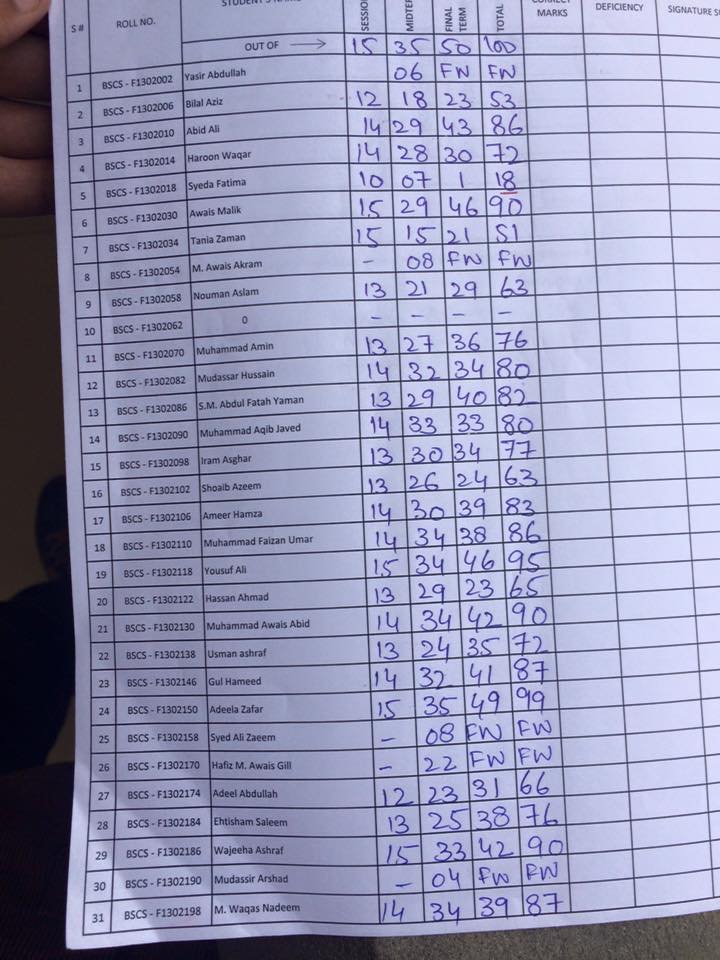 S # ROLL NO. STUDENT'S NAME SESSION MIDTER FINAL TERM TOTAL CORRECT MARKS DEFICIENCY SIGNATURE
OUT OF → 15 35 50 100
1 BSCS - F1302002 Yasir Abdullah 06 FW FW
2 BSCS - F1302006 Bilal Aziz 12 18 23 53
3 BSCS - F1302010 Abid Ali 14 29 43 86
4 BSCS - F1302014 Haroon Waqar 14 28 30 72
5 BSCS - F1302018 Syeda Fatima 10 07 1 18
6 BSCS - F1302030 Awais Malik 15 29 46 90
7 BSCS - F1302034 Tania Zaman 15 15 21 51
8 BSCS - F1302054 M. Awais Akram - 08 FW FW
9 BSCS - F1302058 Nouman Aslam 13 21 29 63
10 BSCS - F1302062 0 - - - -
11 BSCS - F1302070 Muhammad Amin 13 27 36 76
12 BSCS - F1302082 Mudassar Hussain 14 32 34 80
13 BSCS - F1302086 S.M. Abdul Fatah Yaman 13 29 40 82
14 BSCS - F1302090 Muhammad Aqib Javed 14 33 33 80
15 BSCS - F1302098 Iram Asghar 13 30 34 77
16 BSCS - F1302102 Shoaib Azeem 13 26 24 63
17 BSCS - F1302106 Ameer Hamza 14 30 39 83
18 BSCS - F1302110 Muhammad Faizan Umar 14 34 38 86
19 BSCS - F1302118 Yousuf Ali 15 34 46 95
20 BSCS - F1302122 Hassan Ahmad 13 29 23 65
21 BSCS - F1302130 Muhammad Awais Abid 14 34 42 90
22 BSCS - F1302138 Usman ashraf 13 24 35 72
23 BSCS - F1302146 Gul Hameed 14 32 41 87
24 BSCS - F1302150 Adeela Zafar 15 35 49 99
25 BSCS - F1302158 Syed Ali Zaeem - 08 FW FW
26 BSCS - F1302170 Hafiz M. Awais Gill - 22 FW FW
27 BSCS - F1302174 Adeel Abdullah 12 23 31 66
28 BSCS - F1302184 Ehtisham Saleem 13 25 38 76
29 BSCS - F1302186 Wajeeha Ashraf 15 33 42 90
30 BSCS - F1302190 Mudassir Arshad - 04 FW FW
31 BSCS - F1302198 M. Waqas Nadeem 14 34 39 87